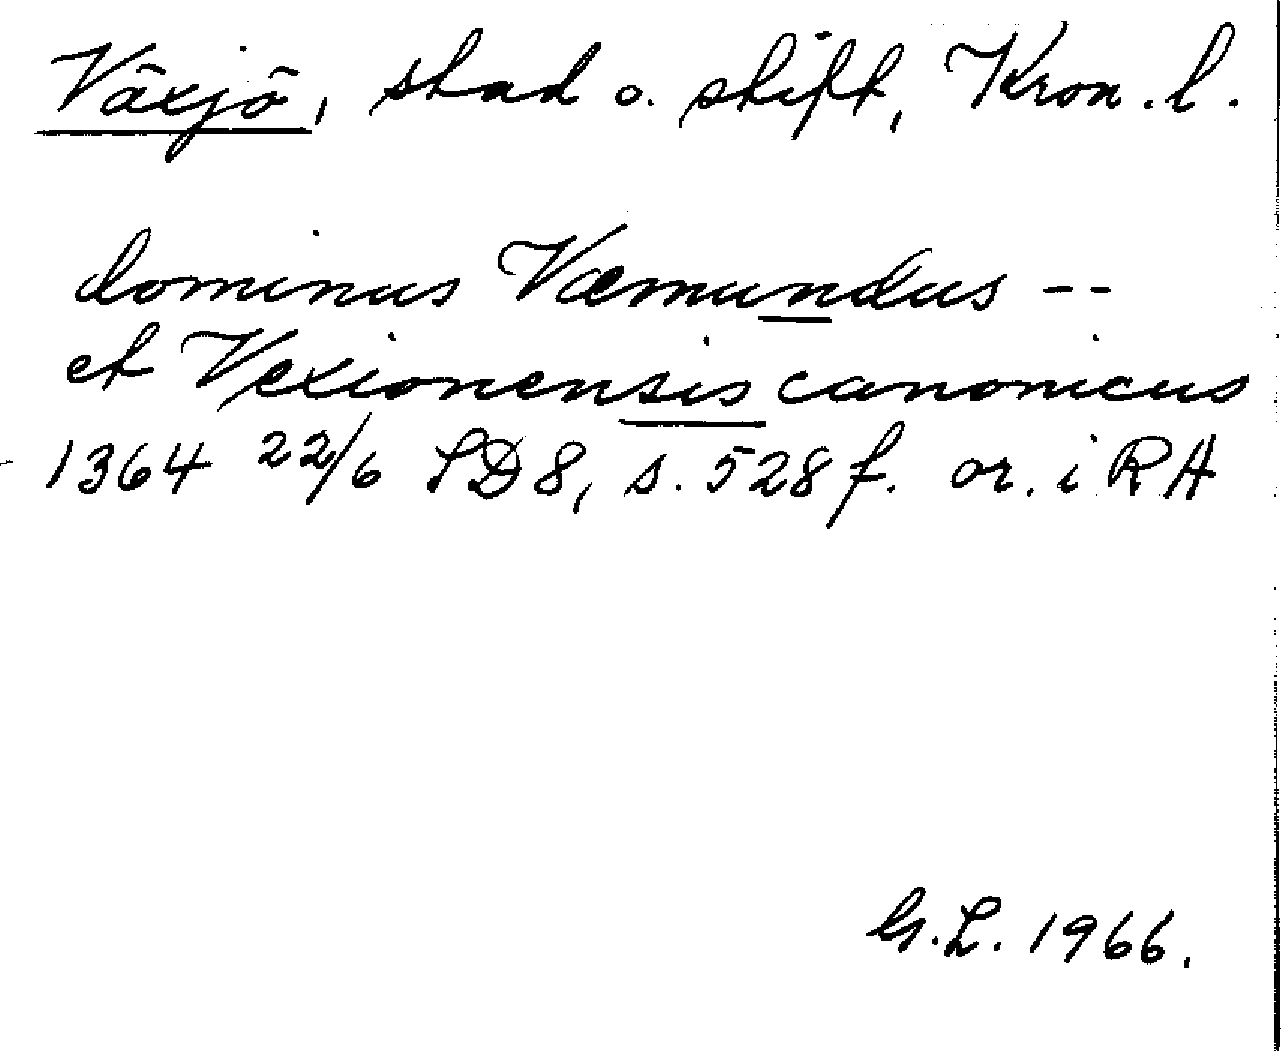 Växjö, stad o. stift, Kron. l.
dominus Væmundus --
et Vexionensis canonicus
1364 22/6 SD 8, s. 528 f. or. i RA
G.L. 1966.